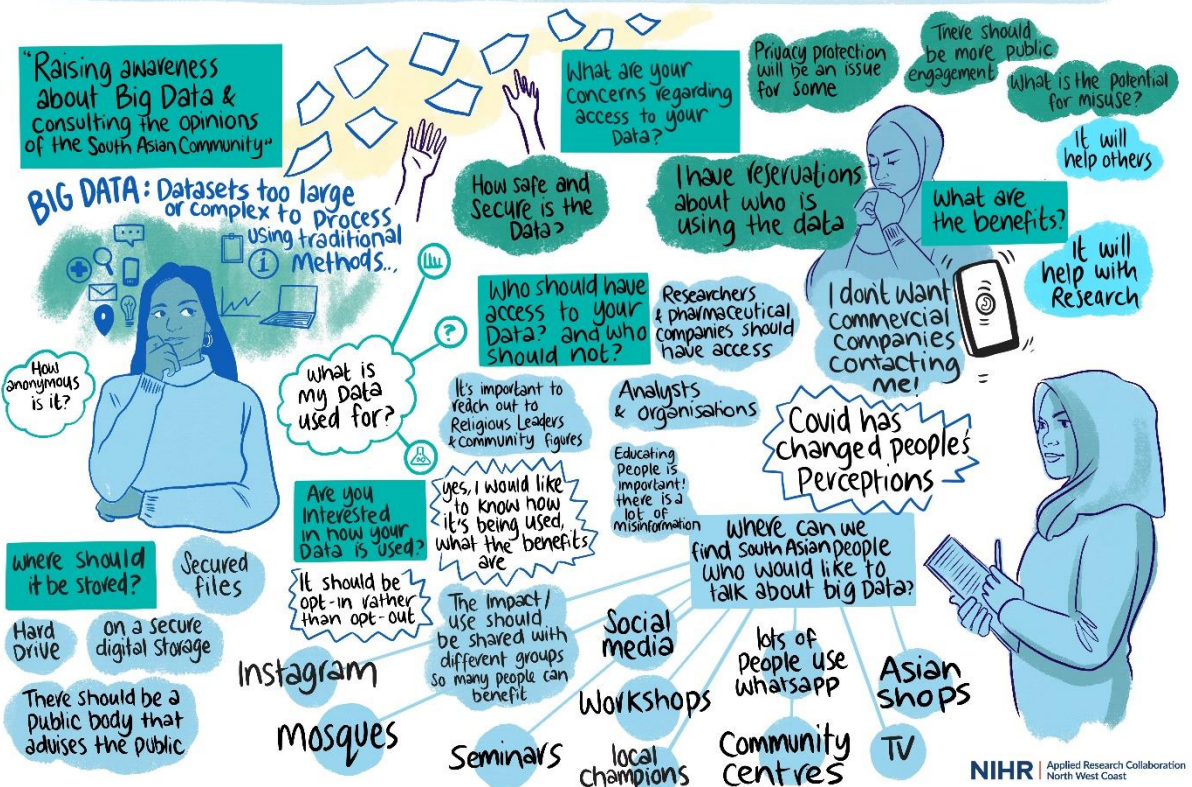 "Raising awareness
about Big Data &
consulting the opinions
of the South Asian Community"
BIG DATA: Datasets too large
or complex to process
using traditional
Methods...
What are your
Concerns regarding
access to your
Data?
Privacy protection
will be an issue
for some
There should
be more public
engagement
What is the potential
for misuse?
How safe and
Secure is the
Data?
I have reservations
about who is
using the data
It will
help others
What are
the benefits?
It will
help with
Research
How
anonymous
is it?
What is
my Data
used for?
?
i
Who should have
access to your
Data? and who
should not?
Researchers
& pharmaceutical
companies should
have access
I don't want
Commercial
Companies
Contacting
me!
It's important to
reach out to
Religious Leaders
& community figures
Analysts
& organisations
Educating
People is
important!
there is a
lot of
misinformation
Covid has
changed people's
Perceptions
Are you
Interested
in how your
Data is used?
yes, I would like
to know how
it's being used,
what the benefits
are
It should be
opt-in rather
than opt-out
The Impact/
use should
be shared with
different groups
so many people can
benefit
Where should
it be stored?
Secured
files
Hard
Drive
on a secure
digital storage
There should be a
Public body that
advises the public
Where can we
find South Asian people
who would like to
talk about big Data?
Instagram
Mosques
Seminars
Social
media
Workshops
local
champions
lots of
People use
whatsapp
Community
centres
Asian
shops
TV
NIHR | Applied Research Collaboration
North West Coast